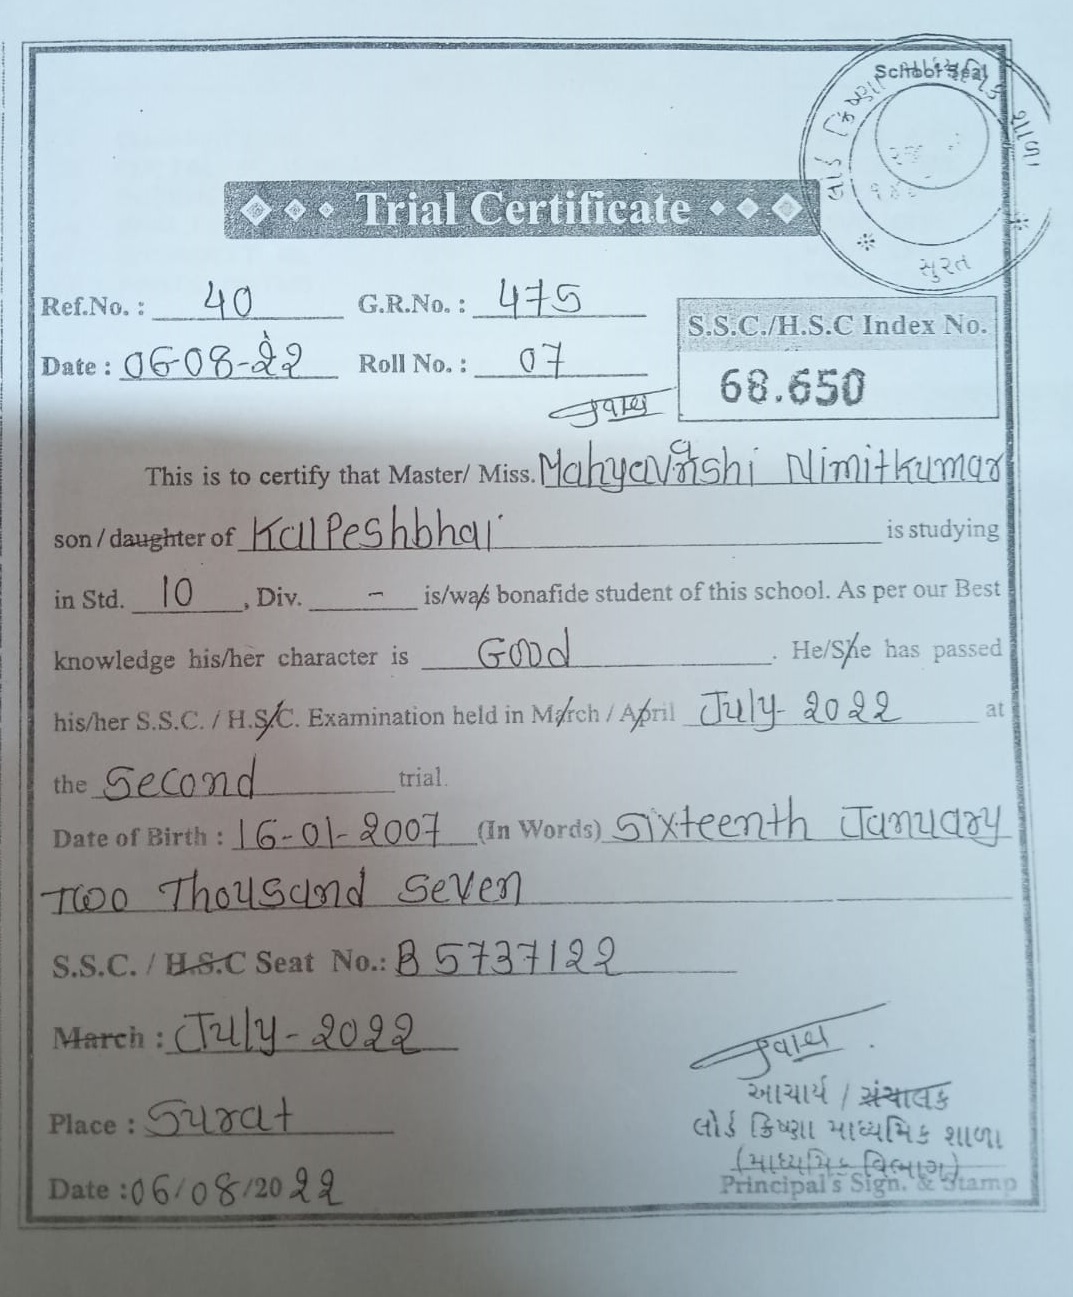 School Seal
લોર્ડ ક્રિષ્ણા માધ્યમિક શાળા
સુરત
Trial Certificate
Ref.No. : 40 G.R.No. : 475
Date : 06-08-22 Roll No. : 07
S.S.C./H.S.C Index No.
68.650
This is to certify that Master/ Miss. Mahyavanshi Nimitkumar
son / daughter of Kalpeshbhai is studying
in Std. 10 , Div. - is/was bonafide student of this school. As per our Best
knowledge his/her character is Good . He/She has passed
his/her S.S.C. / H.S.C. Examination held in March / April July- 2022 at
the Second trial.
Date of Birth : 16-01-2007 (In Words) Sixteenth January
Two Thousand Seven
S.S.C. / H.S.C Seat No.: B 5737122
March : July-2022
આચાર્ય / સંચાલક
Place : Surat
લોર્ડ ક્રિષ્ણા માધ્યમિક શાળા
(માધ્યમિક વિભાગ)
Date :06/08/2022
Principal's Sign. & Stamp